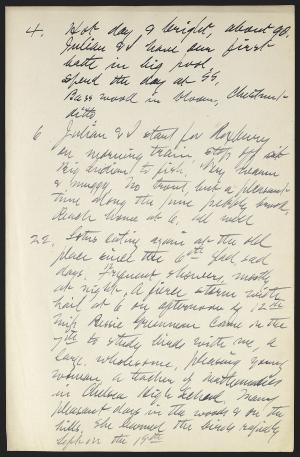 4. Hot day & bright, about 90.
Julian & I have our first
bath in big pool
spend the day at SS.
Bass wood in bloom, Chestnut
ditto
6 Julian & I start for Roxbury
on morning train, stop off at
Big Indian to fish. Very warm
& muggy. No trout, but a pleasant
time along the pure pebbly brook.
Reach home at 6. All well
22. Lotus eating again at the old
place since the 6th. Glad sad
days. Frequent showers, mostly
at night, A fierce storm with
hail at 6 on afternoon of 12th
Miss Greenman came on the
7th to study birds with me, a
large, wholesome, pleasing young
woman, a teacher of mathematics
in Chelsea High School. Many
pleasant days in the woods & on the
hills. She learned the birds rapidly
Left on the 19th